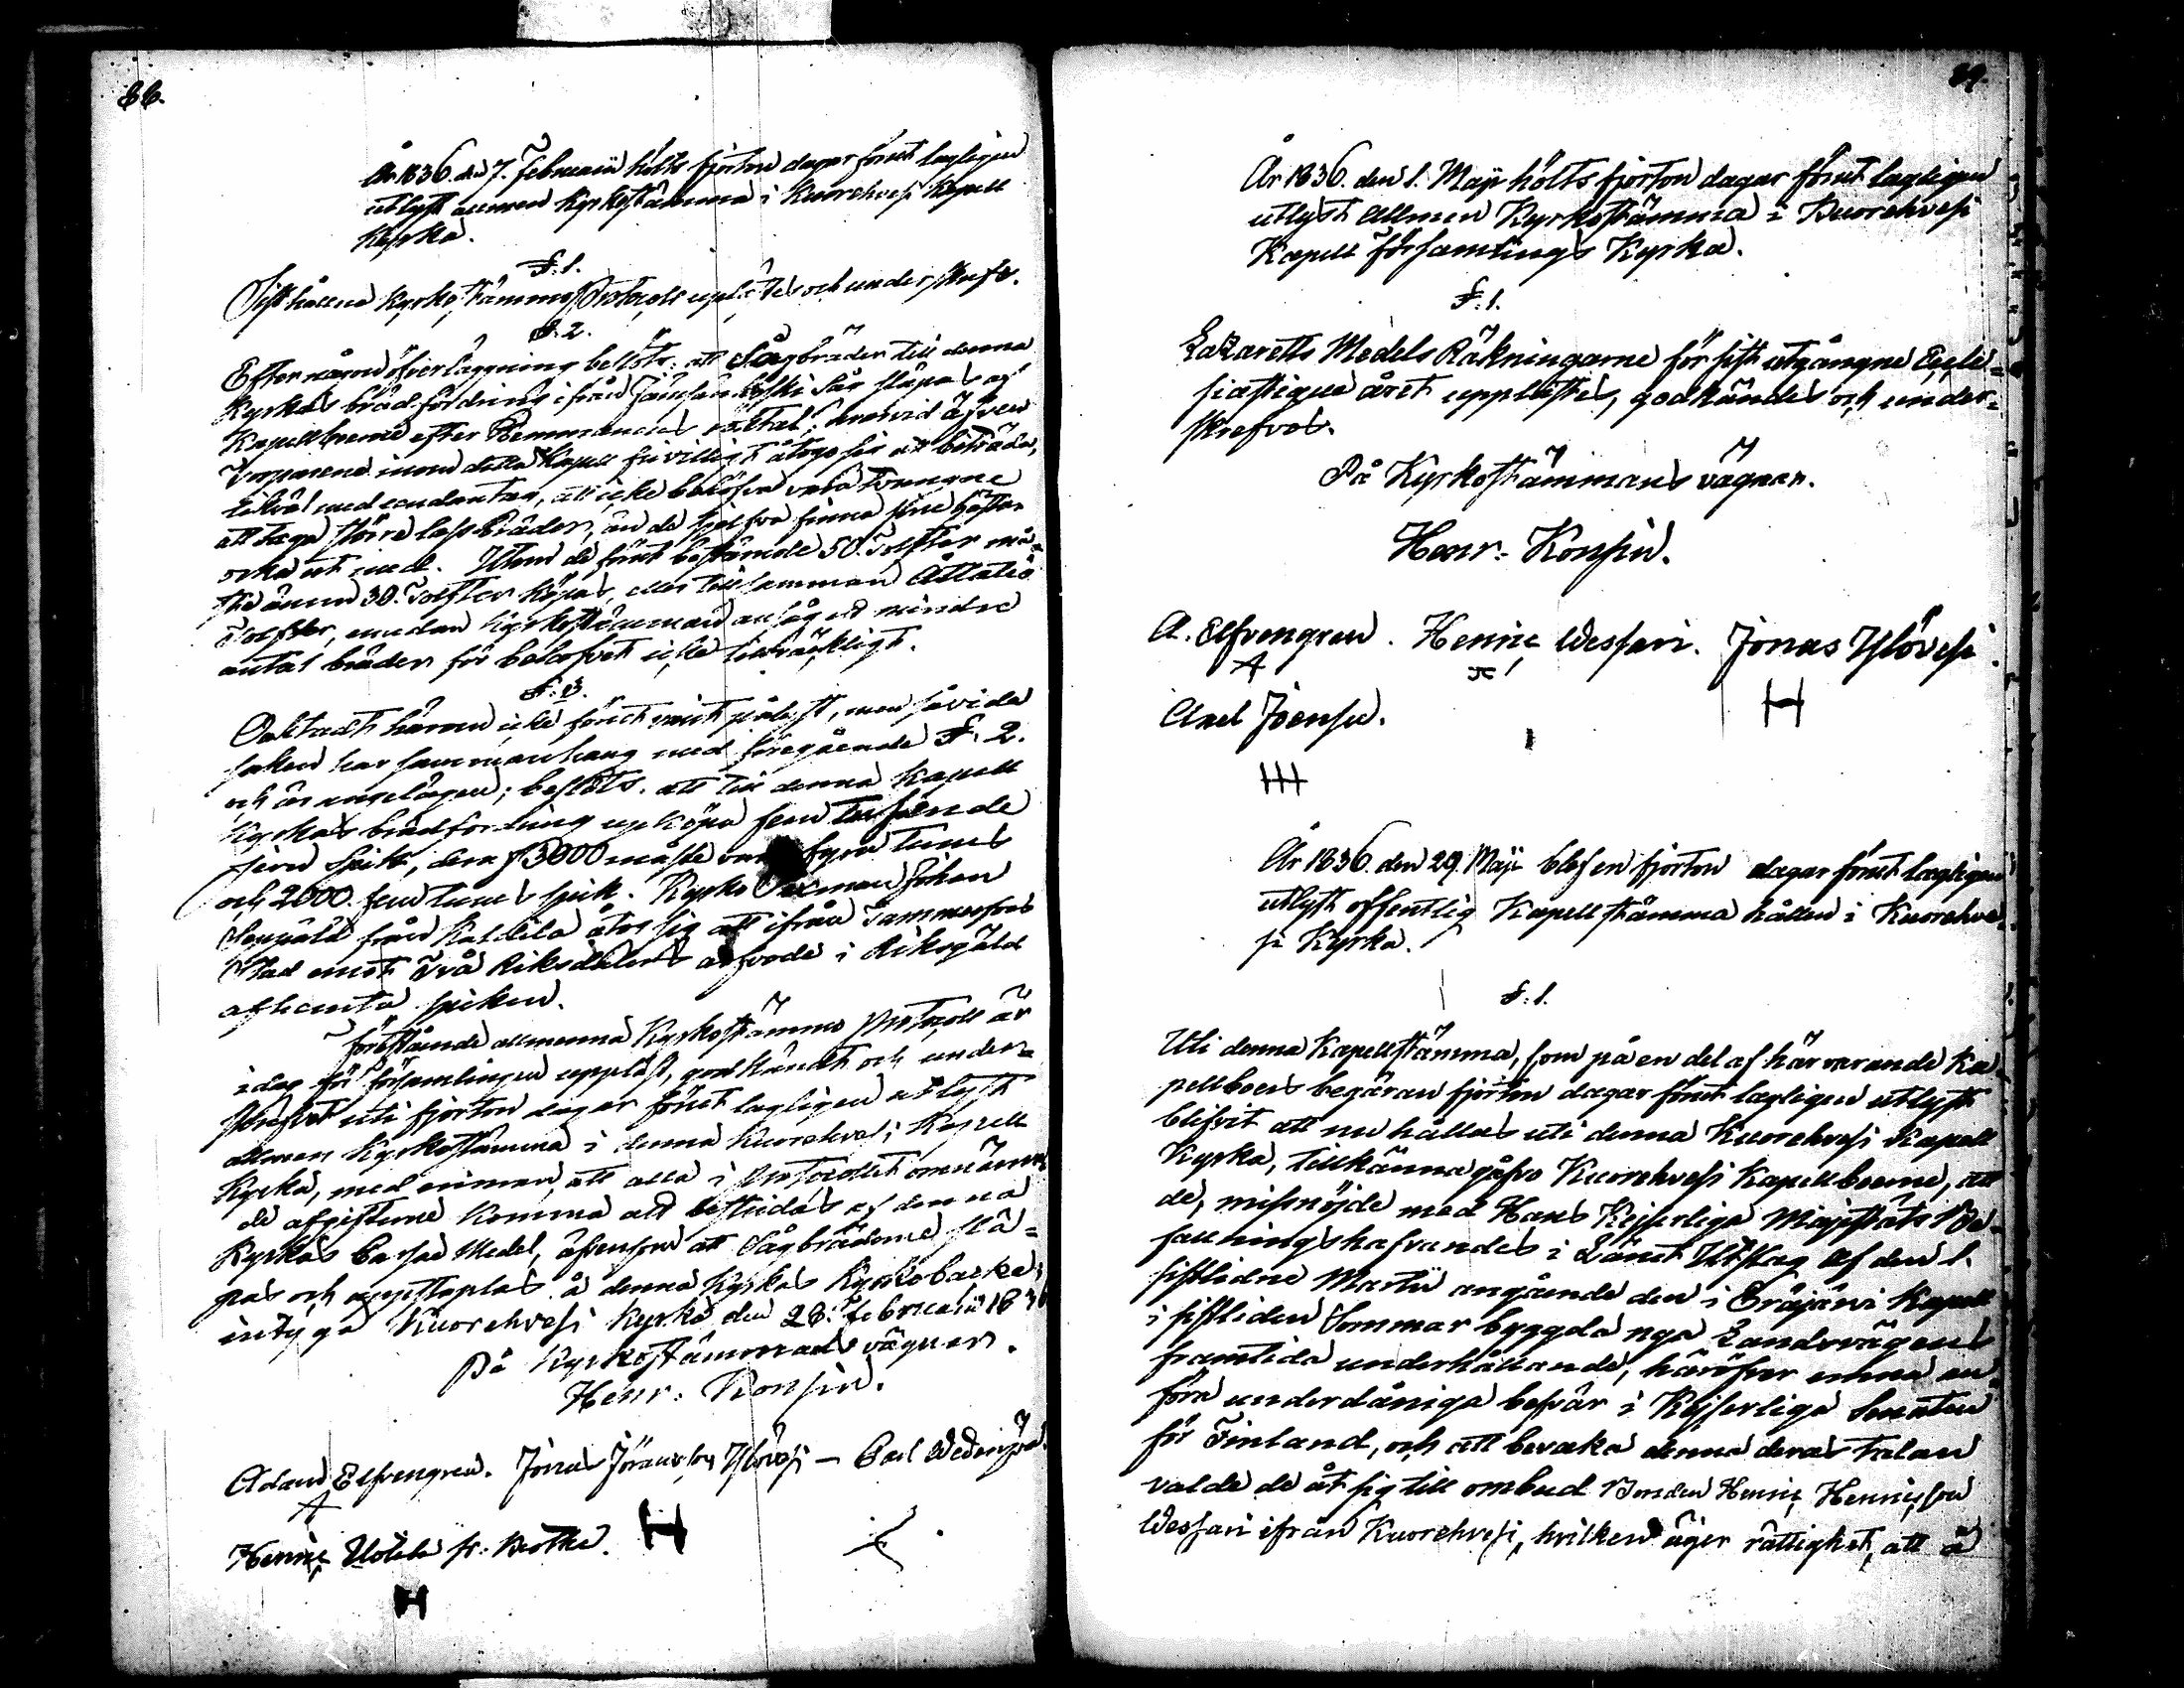 86.
År 1836. den 7. Februarii hölts fjorton dagar förut lagligen
utlyst allmen Kyrkostämma i Kuorehvesi Kapell
Kyrka.
§. 1.
Sist hållne Kyrkostämmos Protocoll uplästes och underskrefs.
§. 2.
Efter någon öfverläggning beslöts: att Sågbräder till denna
Kyrkas brädfordring ifrån koski Såg släpas af
Kapellboerne efter Hemmanens ; hvarvid äfven
Torparene inom detta Kapell frivilligt åtogo sig att biträda,
likväl med undantag, att icke behöfva vara tvungne
att taga större lass Bräder, än de sjelfva finna sine hästar
orka ut med. Utom de förut bestämde 50. Tolfter må-
ste ännu 30. Tolfter köpas, eller tillsamman Åttatio
Tolfter, emedan Kyrkostämman ansåg ett mindre
antal bräder för behofvet icke tillräckligt.
§. 3.
Oaktadt härom icke förut varit pålyst, men såvida
saken har sammanhang med föregående §. 2.
och är angelägen; beslöts: att till denna Kapell
Kyrkas brädfordring upköpa fem tusende
jern Spik, deraf 3000 måste vara fyra tums
och 2000. fem tums spik. Kyrko Johan
Seppälä från Kaldila åtog sig att ifrån Tammerfors
Stad emot Två Riksdalers arfvode i Riksgäld
afhemta spiken.
Föreståande allmenna Kyrkostämmo Protocoll är
idag för Församlingen uppläst, godkändt och under-
skrifvet uti fjorton dagar förut lagligen utlyst
allmen Kyrkostämma i denna Kuorehvesi Kapell
Kyrka, med , att alla i Protocollet omnämn
de afgifterne komma att bestridas af denna
Kyrkas Cassae Medel, äfvensom att Sågbräderne slä-
pas och uppstaplas å denna Kyrkas Kyrkobacke;
intyga Kuorehvesi Kyrka den 28. Februarii 1836
På Kyrkostämmans vägnar.
Henr: Konsin.
Adam Elfvengren. Jonas Jöransson Ylövesi — Carl
A
Henric Uotila fr. .
H
H
År 1836. den 1. Maji hölts fjorton dagar förut lagligen
utlyst Allmen Kyrkostämma i Kuorehvesi
Kapell Församlings Kyrka.
§. 1.
Lazaretts Medels Räkningarne för sist utgångne Eccle-
siastique året upplästes, godkändes och under-
skrefvos.
På Kyrkostämmans vägnar.
Henr: Konsin.
A. Elfvengren. Henric Wessari. Jonas Ylövesi.
A
H
Axel Joensu.
År 1836. den 29. Maji blef en fjorton dagar förut lagligen
utlyst offentlig Kapellstämma hållen i Kuorehve
si Kyrka.
§. 1.
Uti denna Kapellstämma, som på en del af härvarande Ka-
pellboers begäran fjorton dagar förut lagligen utlyst
blifvit att nu hållas uti denna Kuorehvesi Kapell
Kyrka, tillkänna gåfvo Kuorehvesi Kapellboerne, att
de, missnöjde med Hans Kejserliga Majestäts Be-
fallningshafvandes i Länet Utslag af den 1.
sistlidne Martii angående den i Eräjärvi Kapell
i sistliden Sommar byggda nya Landsvägens
framtida underhållande, häröfver ämna an-
föra underdåniga besvär i Kejserliga Senaten
för Finland, och att bevaka denna deras talan
valde de åt sig till ombud Bonden Henric Henricsson
Wessari ifrån Kuorehvesi, hvilken äger rättighet, att å